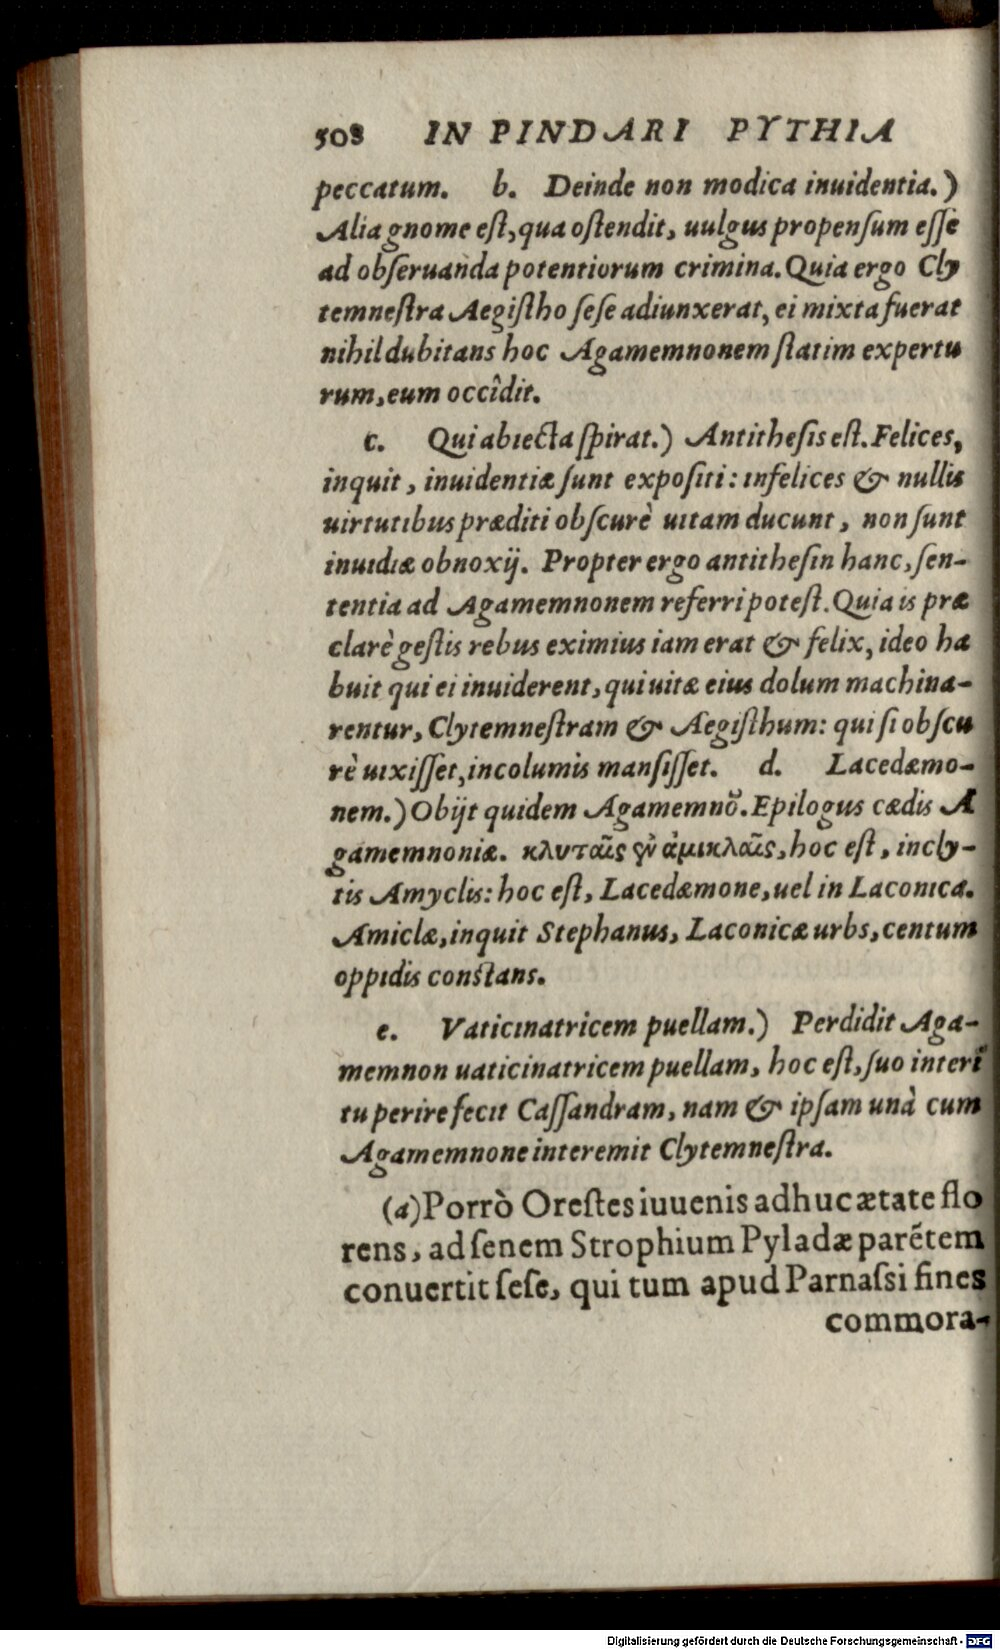 508 IN PINDARI PYTHIA
peccatum. b. Deinde non modica inuidentia.)
Alia gnome eſt, qua oſtendit, uulgus propenſum eſſe
ad obſeruanda potentiorum crimina. Quia ergo Cly
temneſtra Aegiſtho ſeſe adiunxerat, ei mixta fuerat
nihil dubitans hoc Agamemnonem ſtatim expertu
rum, eum occîdit.
c. Qui abiecta ſpirat.) Antitheſis eſt. Felices,
inquit, inuidentiæ ſunt expoſiti: infelices & nullis
uirtutibus præditi obſcurè uitam ducunt, non ſunt
inuidiæ obnoxij. Propter ergo antitheſin hanc, ſen-
tentia ad Agamemnonem referri poteſt. Quia is præ
clarè geſtis rebus eximius iam erat & felix, ideo ha
buit qui ei inuiderent, qui uitæ eius dolum machina-
rentur, Clytemneſtram & Aegiſthum: qui ſi obſcu
rè uixiſſet, incolumis manſiſſet. d. Lacedæmo-
nem.) Obijt quidem Agamemnõ. Epilogus cædis A
gamemnoniæ. κλυταῖς ἐν ἀμικλαῖς, hoc eſt, incly-
tis Amyclis: hoc eſt, Lacedæmone, uel in Laconica.
Amiclæ, inquit Stephanus, Laconicæ urbs, centum
oppidis conſtans.
e. Vaticinatricem puellam.) Perdidit Aga-
memnon uaticinatricem puellam, hoc eſt, ſuo interi
tu perire fecit Caſſandram, nam & ipſam unà cum
Agamemnone interemit Clytemneſtra.
(a) Porrò Oreſtes iuuenis adhuc ætate flo
rens, ad ſenem Strophium Pyladæ parẽtem
conuertit ſeſe, qui tum apud Parnaſsi fines
commora-
Digitalisierung gefördert durch die Deutsche Forschungsgemeinschaft - DFG